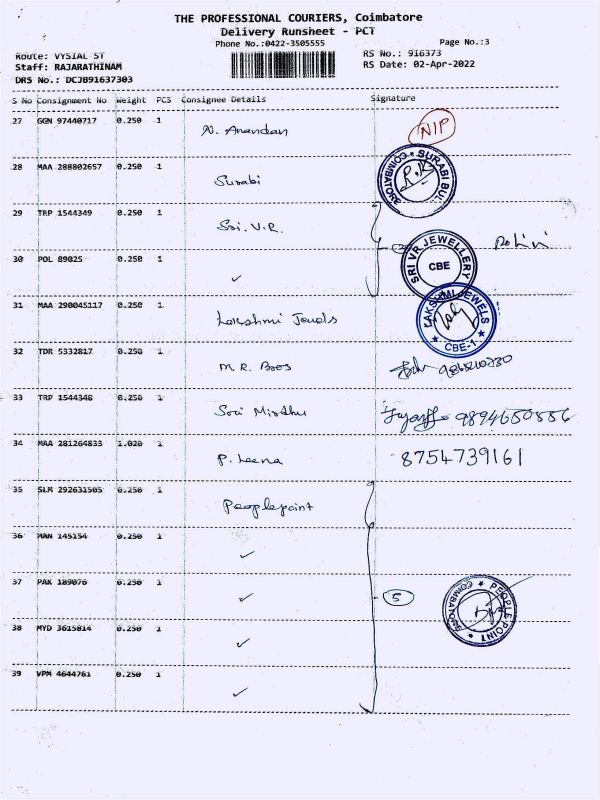 THE PROFESSIONAL COURIERS, Coimbatore
Delivery Runsheet - PCT
Phone No.:0422-3505555
Page No.:3
Route: VYSIAL ST
RS No.: 916373
Staff: RAJARATHINAM
RS Date: 02-Apr-2022
DRS No.: DCJB91637303
S No Consignment No Weight PCS Consignee Details Signature
27 GGN 97440717 0.250 1 N. Anandan NIP
28 MAA 288802657 0.250 1 Surabi
COIMBATORE * SURABI BULL
29 TRP 1544349 0.250 1 Sri. V.R.
SRI VR JEWELLERY CBE
30 POL 89025 0.250 1 ✓
31 MAA 290045117 0.250 1 Lakshmi Jewels
LAKSHMI JEWELS * CBE-1 *
32 TDR 5332817 0.250 1 M.R. Bros
33 TRP 1544348 0.250 1 Sri Mirdhu 9894650556
34 MAA 281264833 1.020 1 P. Leena 8754739161
35 SLM 292631505 0.250 1 Peoplepoint
36 MAN 145154 0.250 1 ✓
37 PAK 189076 0.250 1 ✓ 5
PEOPLE POINT * COIMBATORE *
38 MYD 3615814 0.250 1 ✓
39 VPM 4644761 0.250 1 ✓